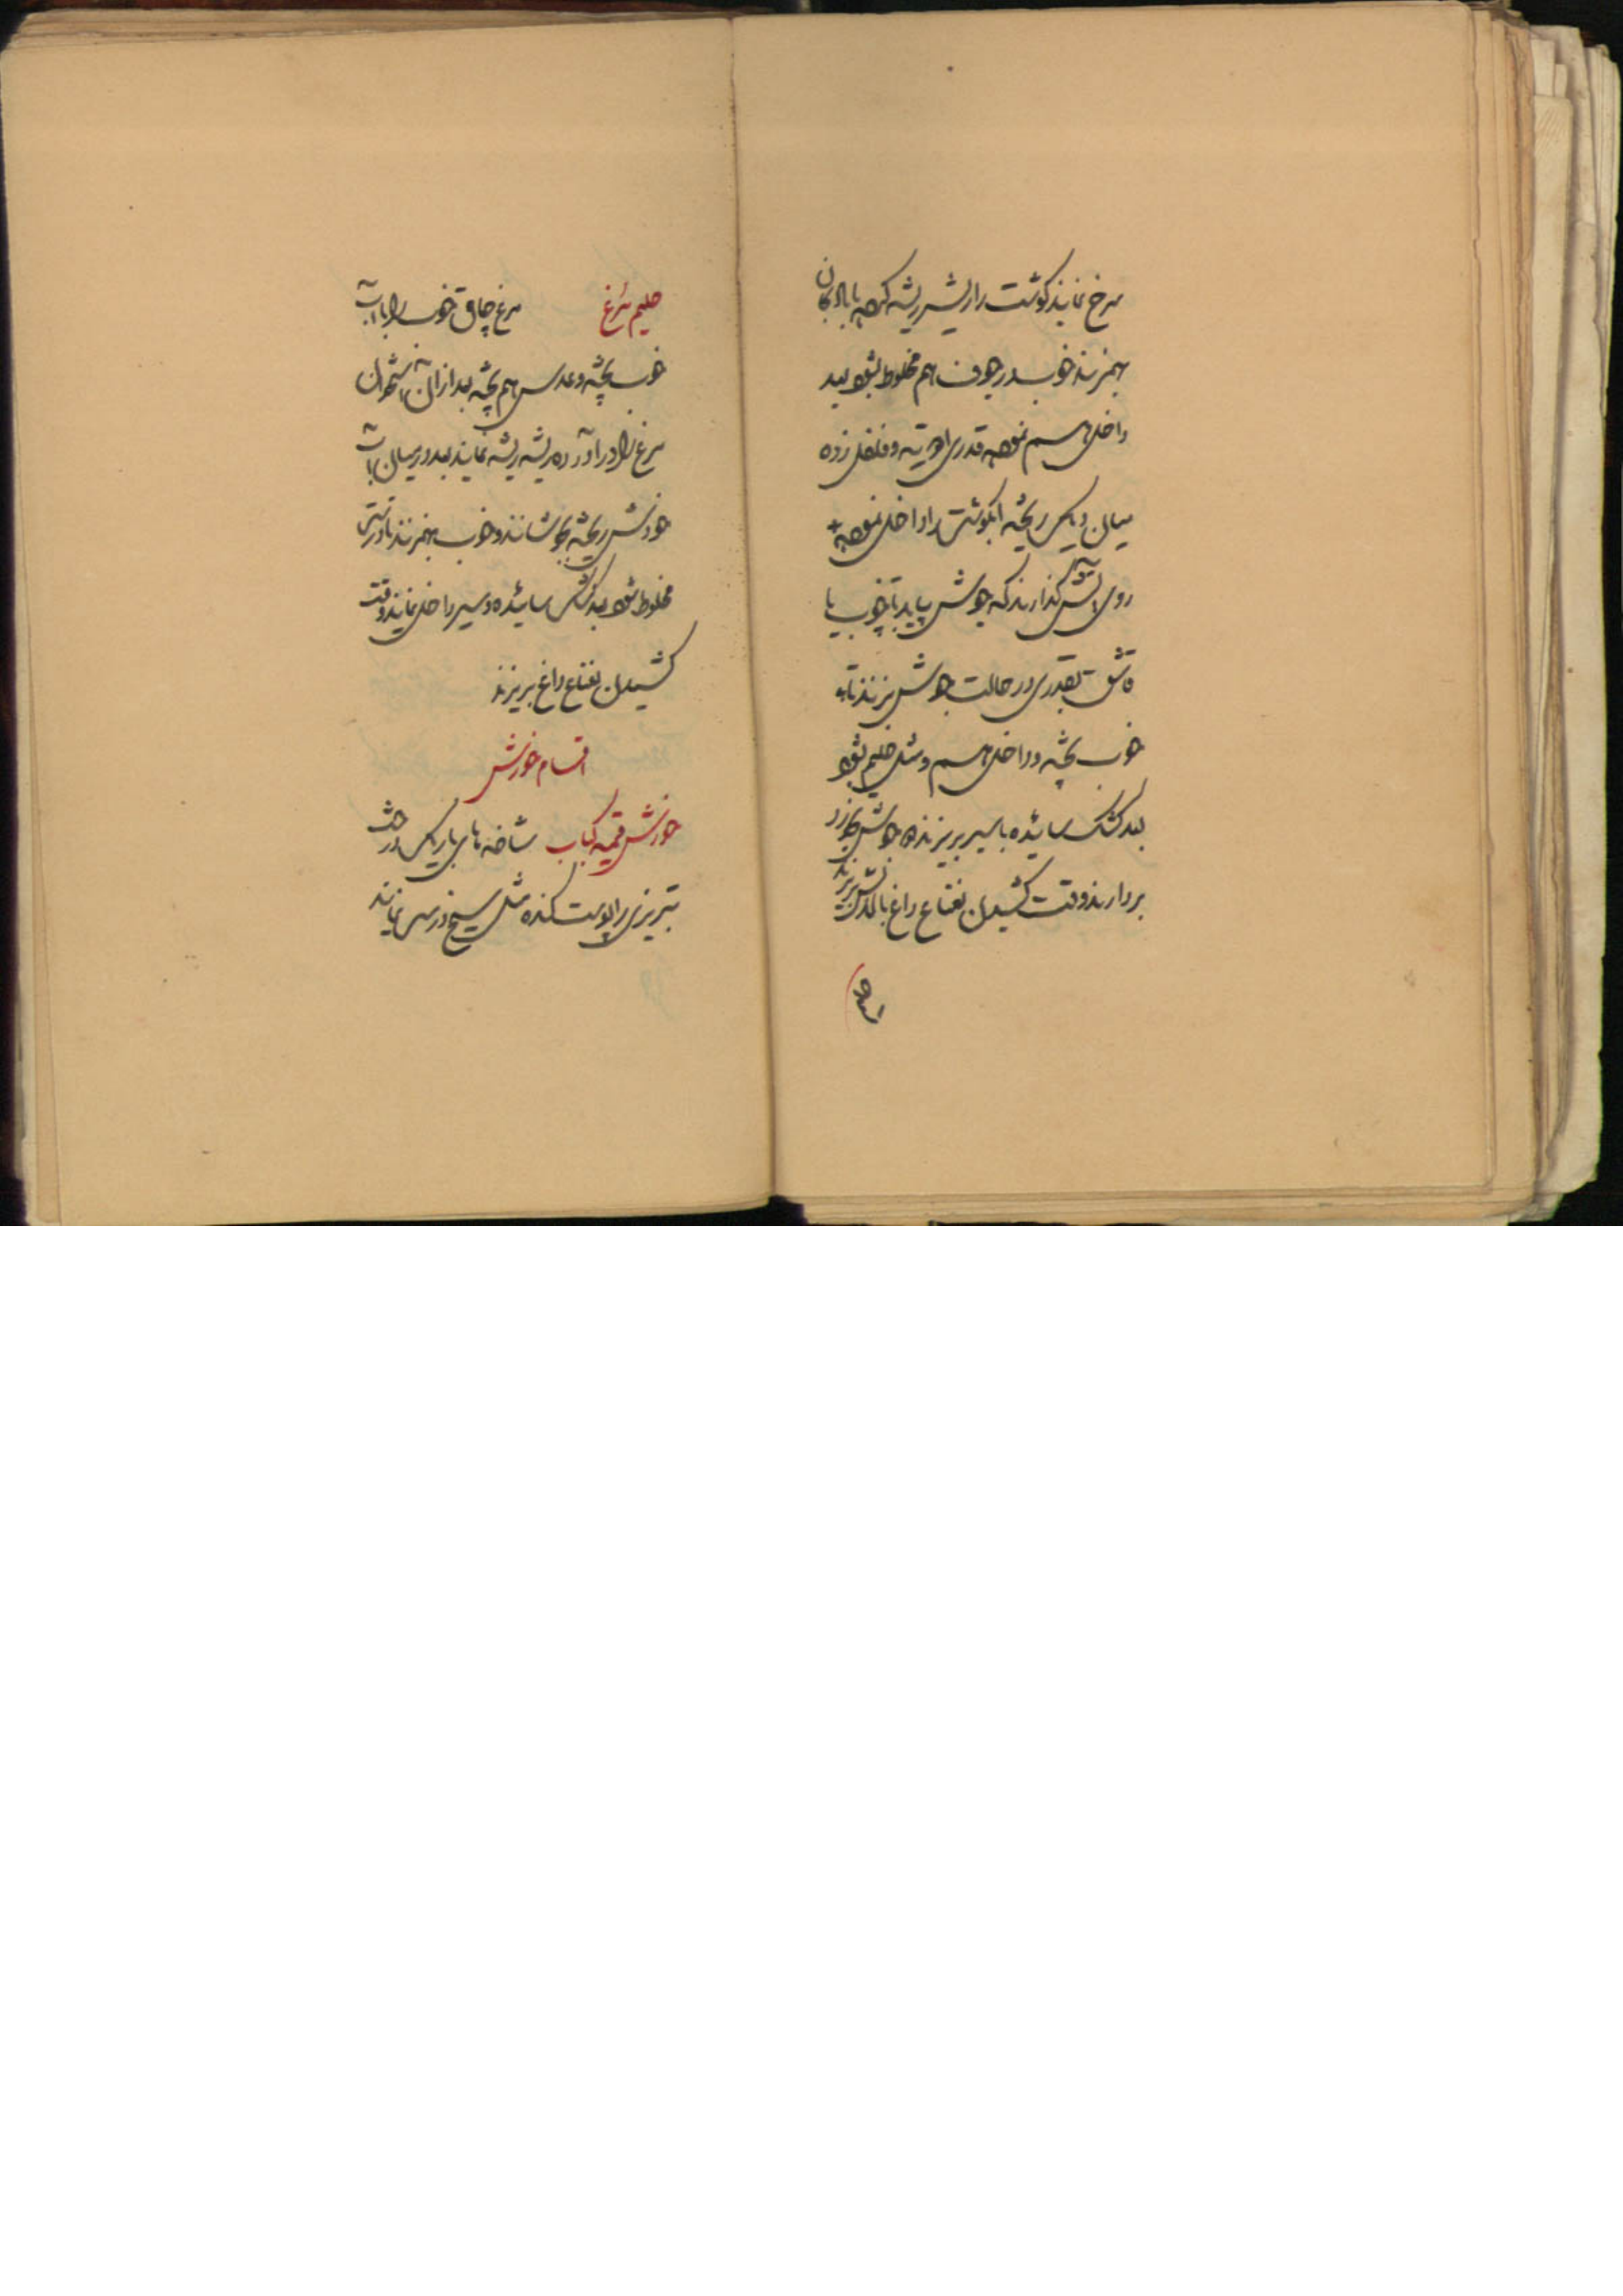 سرخ نمایند گوشت را ریشه ریشه کرده با بادنجان
بهم زنند خوب در جوف هم مخلوط شود بعد
داخل هم نموده قدری ادویه و فلفل زده
میان دیگ ریخته آبگوشت را داخل نموده
روی آتش گذارند که جوش بیاید تا خوب با
قاشق بقدری در حالت جوش بزنند تا
خوب پخته و داخل هم و مثل حلیم شود
بعد کشک سائیده با سیر بریزند جوش بخورد
بردارند وقت کشیدن نعناع داغ بالایش بریزند
حلیم مرغ مرغ چاق خوب را با آب
خوب پخته و عدس هم پخته بعد از آن استخوان
مرغ را درآورده ریشه ریشه نمایند بعد در میان آب
خودش ریخته بجوشانند و خوب بهم زنند تا درستی
مخلوط شود بعد کشک سائیده و سیر داخل نمایند وقت
کشیدن نعناع داغ بریزند
اقسام خورش
خورش قیمه کباب شاخه های باریک درخت
تبریزی را پوست کنده مثل سیخ درس نمایند